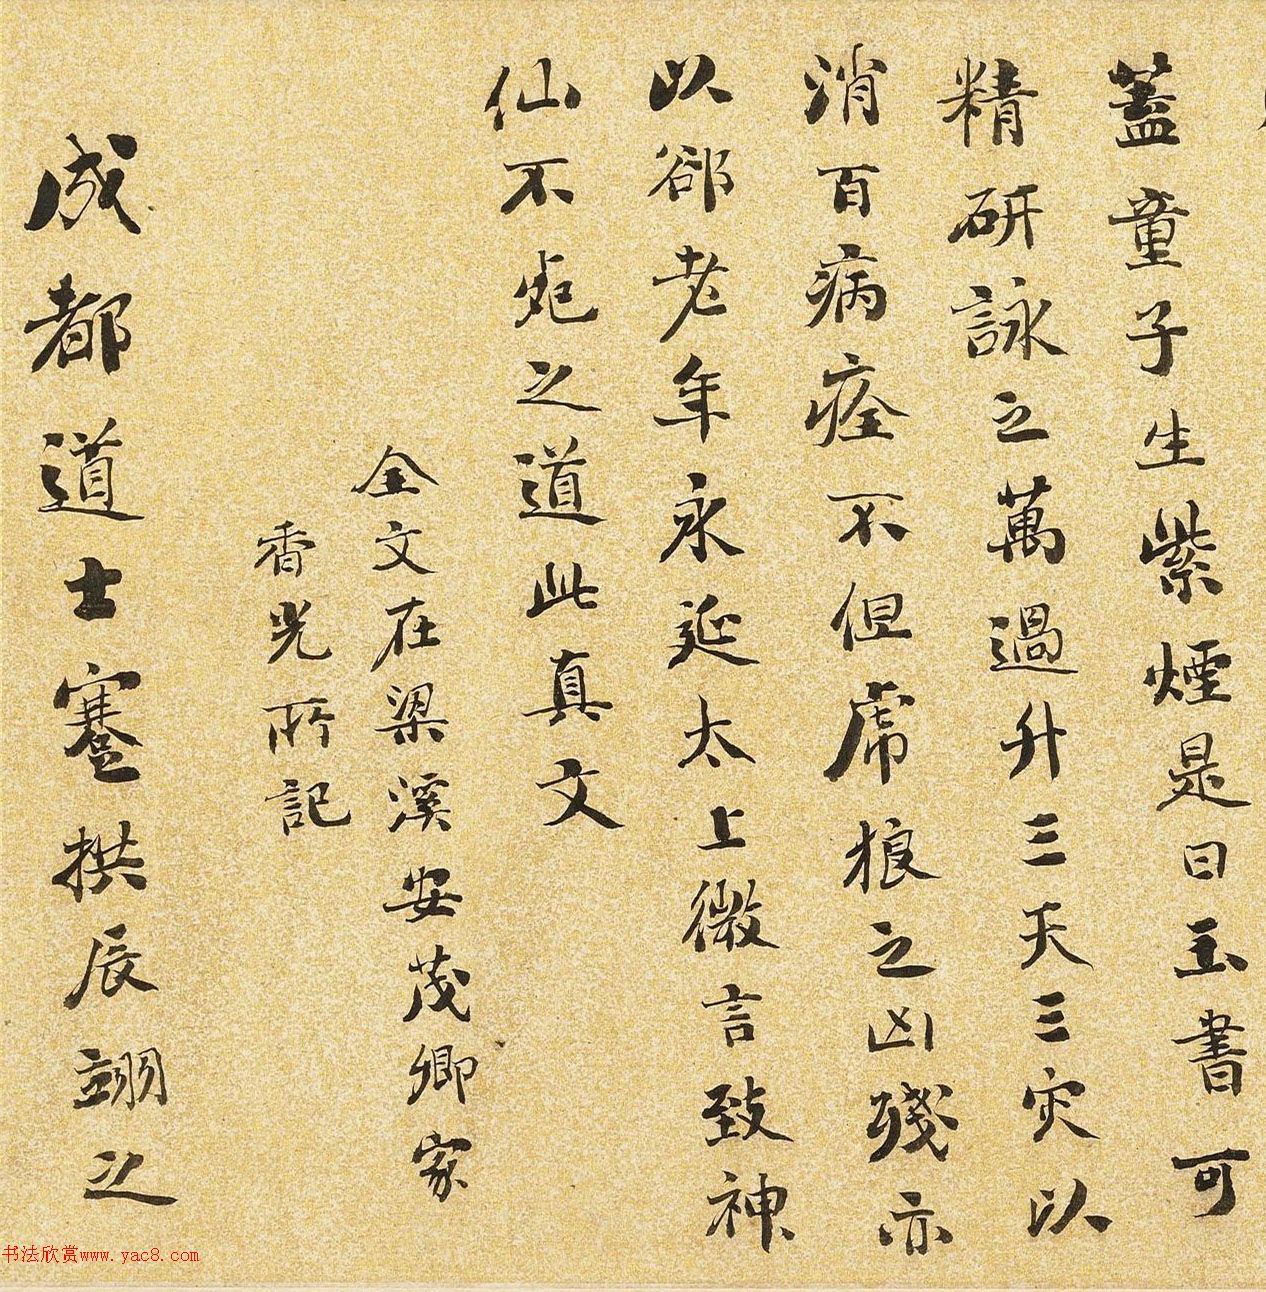 蓋童子生紫煙是曰玉書可
精研詠之萬過升三天三灾以
消百病痊不但虎狼之凶殘亦
以郤老年永延太上微言致神
仙不死之道此真文
全文在梁溪安茂卿家
香光所記
成都道士蹇拱辰翊之
书法欣赏www.yac8.com